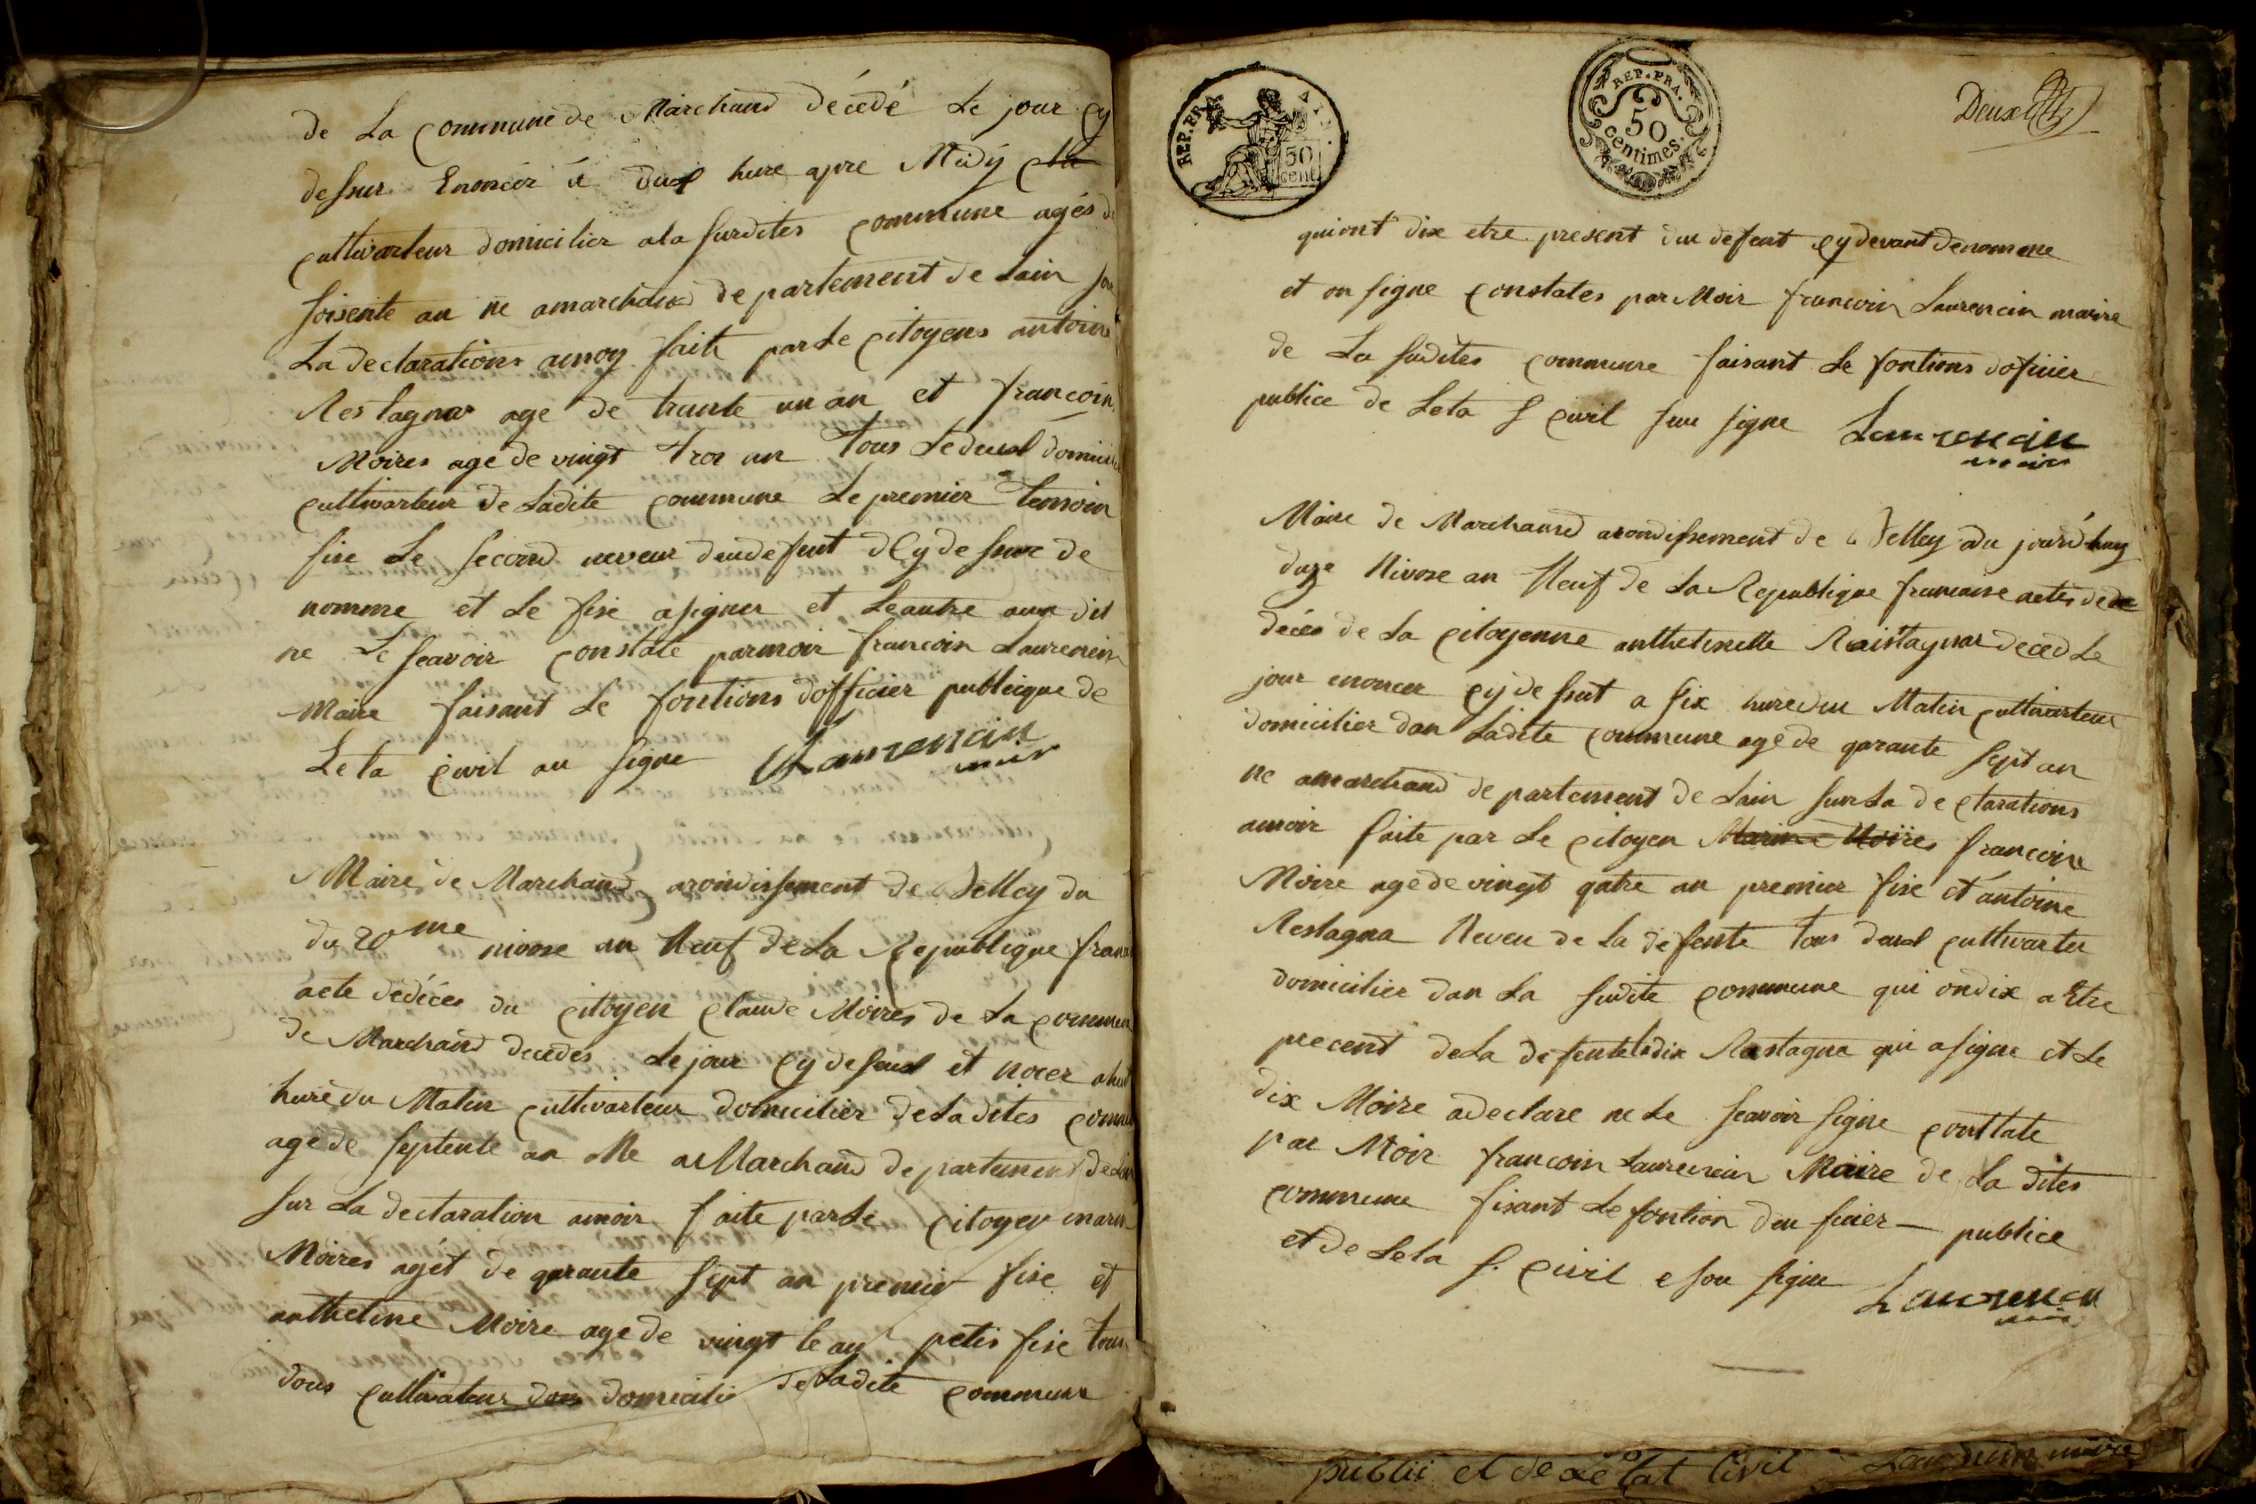 de La commune de Marchand décédé Le jour cy
dessur Enoncér á deux hure apre Midÿ
cultivarteur domicilier ala surdites commune agés de
soisente an ne amarchand departement de Lain sur
La declarations amoy faite par Le citoyens antoine
Restagnar age de trante un an et francoin
Moires age de vingt troi an tous Le deux domicilie
cultivarteur de Ladite commune Le premier temoin
fise Le second neveux dudefent dCy dessure de
nomme et Le fise asigner et Leautre aux dit
ne Le scavoir constaté parmoir francoin Laurencin
Maire faisant Le fontions dofficier publicque de
Leta Civil au signe Laurencin
maire
Maire de Marchand arondissement de Belley du
du 20me nivose an Neuf de La Republique franc
acte dédécés du citoyen claude Moires de La commun
de Marchand decedes Le jour Cy deseux et noncer ahuit
hure du Matin cultivarteur domicilier de Ladites comm
age de septente an Ne a Marchand departement de Lain
sur La declaration amoir faite par Le citoyen marin
Moires agét de qarante sept an premier fise et
antheline Moire age de vingt le an petis fise tous
dous cultivateur dous domicilie de Ladite commune
REP. FRA.
50
cent
REP. FRA.
50
centimes.
Deux
qui ont dix etre present du defent cy devant denomme
et on signe constates par Moir francoin Laurencin maire
de La sudites commune faisant Le fontions doficier
publice de Leta S Civil sou signe Laurencin
maire
Maire de Marchand arondissement de Belley du jourdhuy
duze Nivose an Neuf de La Republique francaise actes de
décés de La citoyenne anthelmette Raistagnar deced Le
jour enoncer cÿ dessut a six hure du Matin cultivarteur
domicilier dan Ladite commune agé de qarante sept an
ne amarchand departement de Lain sur La declarations
amoir faite par Le citoyen Marin Moires francoin
Moire age de vingt qatre an premier fise et antoine
Restagna Neveu de La defente tous deux cultivarteu
domicilier dan La sudite commune qui ondix a Etre
precent de La defente Ledix Rastagna qui asigne et Le
dix Moire adeclare ne Le scavoir signe conttate
par Moir francoin Laurencin Maire de La dites
commune fisant Le fontion dou ficier publice
et de Leta S. Civil e sou signe Laurencin
maire
publii et de Le tat Civil Laurencin maire